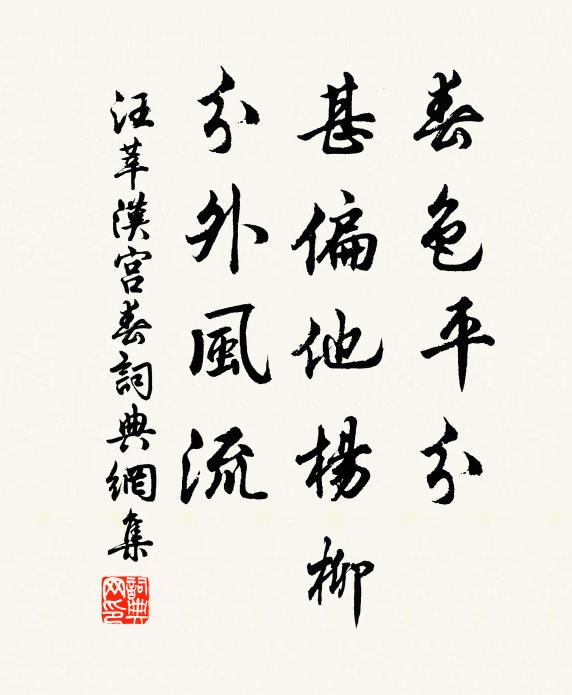 春色平分
甚偏他楊柳
分外風流
汪莘漢宮春詞典網集
詞典网印